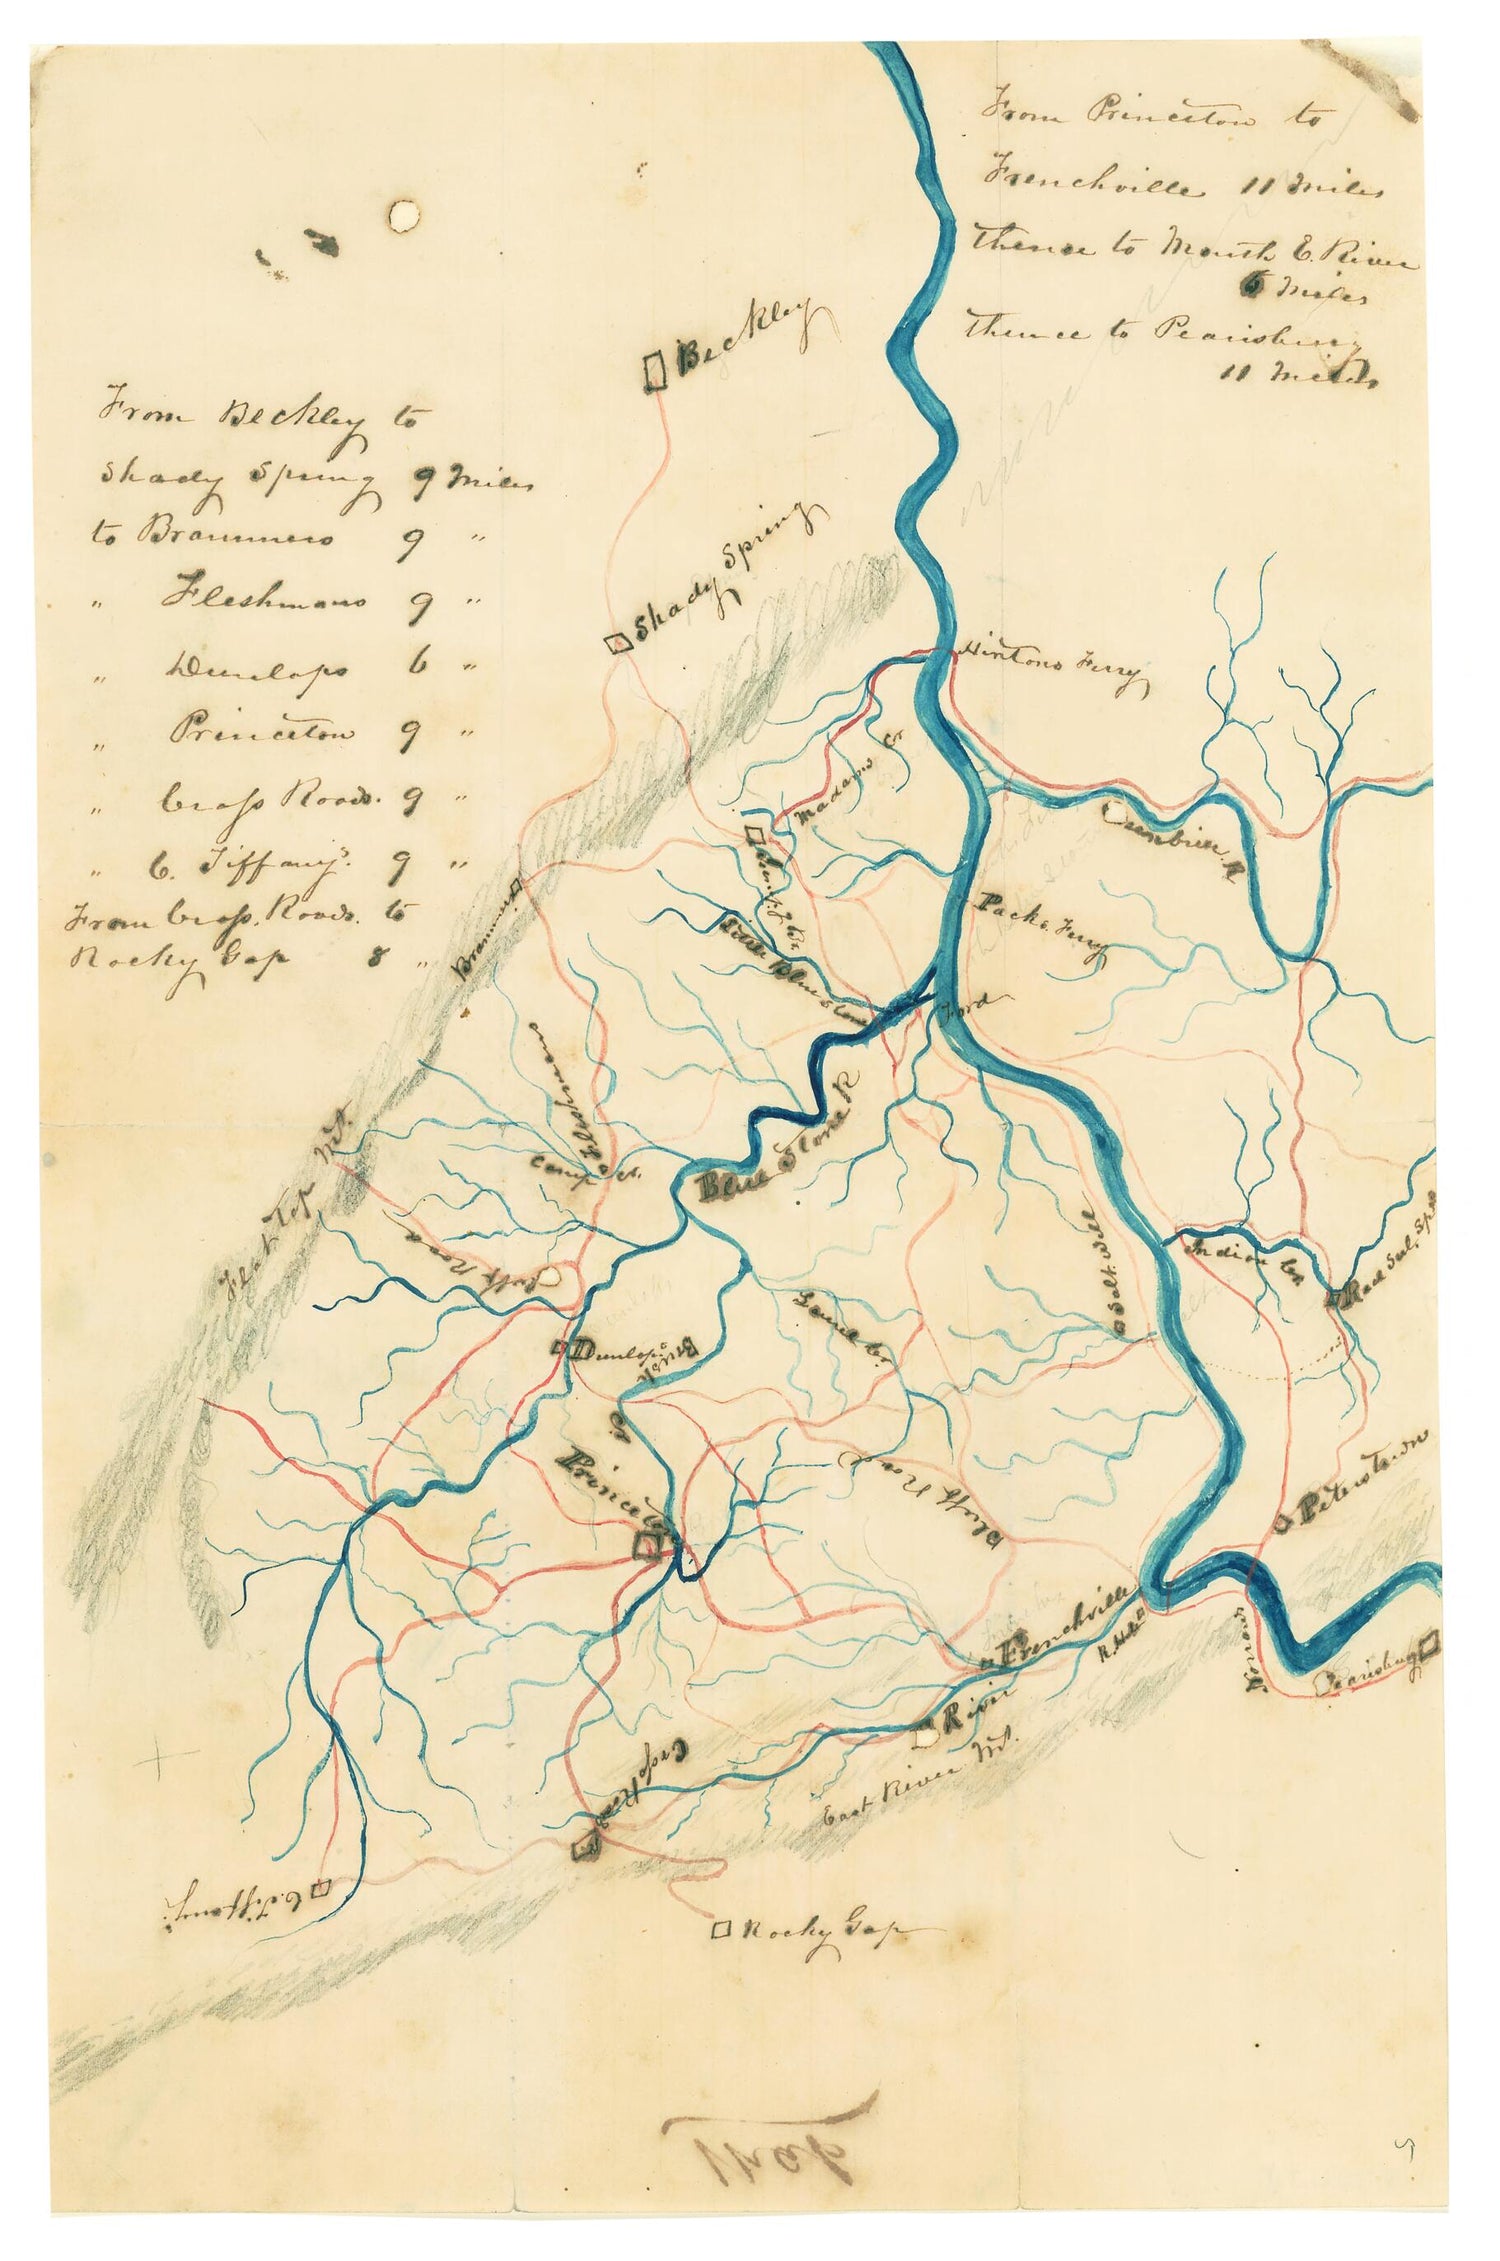 From Princeton to
Frenchville 11 Miles
thence to Mouth E. River
6 Miles
thence to Pearisburg
11 Miles
Beckley
From Beckley to
Shady Spring 9 Miles
to Brammers 9 "
" Fleshmans 9 "
" Dunlops 6 "
" Princeton 9 "
" Cross Roads. 9 "
" C. Tiffany's. 9 "
From Cross. Roads. to
Rocky Gap 8 "
Shady Spring
Hintons Ferry
Madams Cr
Packs. Ferry
Little Blue Stone
Brammers
Ford
Fleshmans
Camp Ct.
Blue Stone R
Flat Top Mt.
Ruff Road
Salt. Well
Indian Crk
Red Sul. Sps
Dunlops
Brush
Cr
Princeton
Bluff Road
Peterstown
Frenchville
River
Narrows
Pearisburg
East River Mt.
Cross Road
C. Tiffany's
Rocky Gap
Map